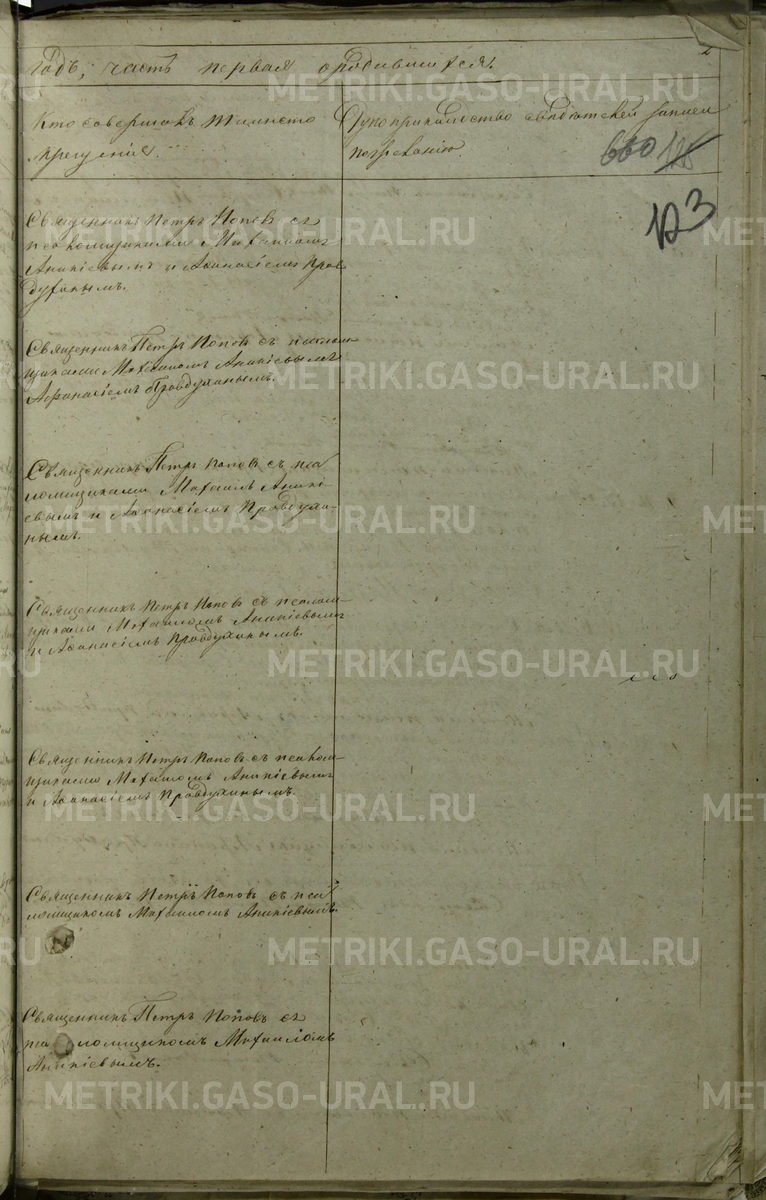 годъ, часть первая о родившихся.
2
Кто совершалъ таинство
крещенія.
Рукоприкладство свидѣтелей записи
по желанію.
660 126
123
Священникъ Петръ Поповъ съ
псаломщиками Михаиломъ
Аникіевымъ и Аѳанасіемъ Прав
духинымъ.
Священникъ Петръ Поповъ съ псалом
щиками Михаиломъ Аникіевымъ
Афанасіемъ Правдухинымъ.
Священникъ Петръ Поповъ съ пса
ломщиками Михаилъ Аники-
евымъ и Аѳанасіемъ Правдухи-
нымъ.
Священникъ Петръ Поповъ съ псалом-
щиками Михаиломъ Аникіевымъ
и Аѳанасіемъ Правдухинымъ.
Священникъ Петръ Поповъ съ псалом-
щиками Михаиломъ Аникіевымъ
и Аѳанасіемъ Правдухинымъ.
Священникъ Петръ Поповъ съ пса
ломщикомъ Михаиломъ Аникіевымъ.
Священникъ Петръ Поповъ съ
псаломщикомъ Михаиломъ
Аникіевымъ.
METRIKI.GASO-URAL.RU